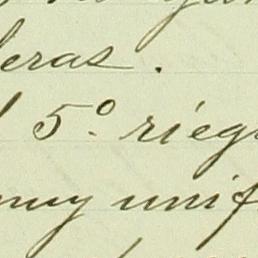 eras.
5.º rieg
muy unif